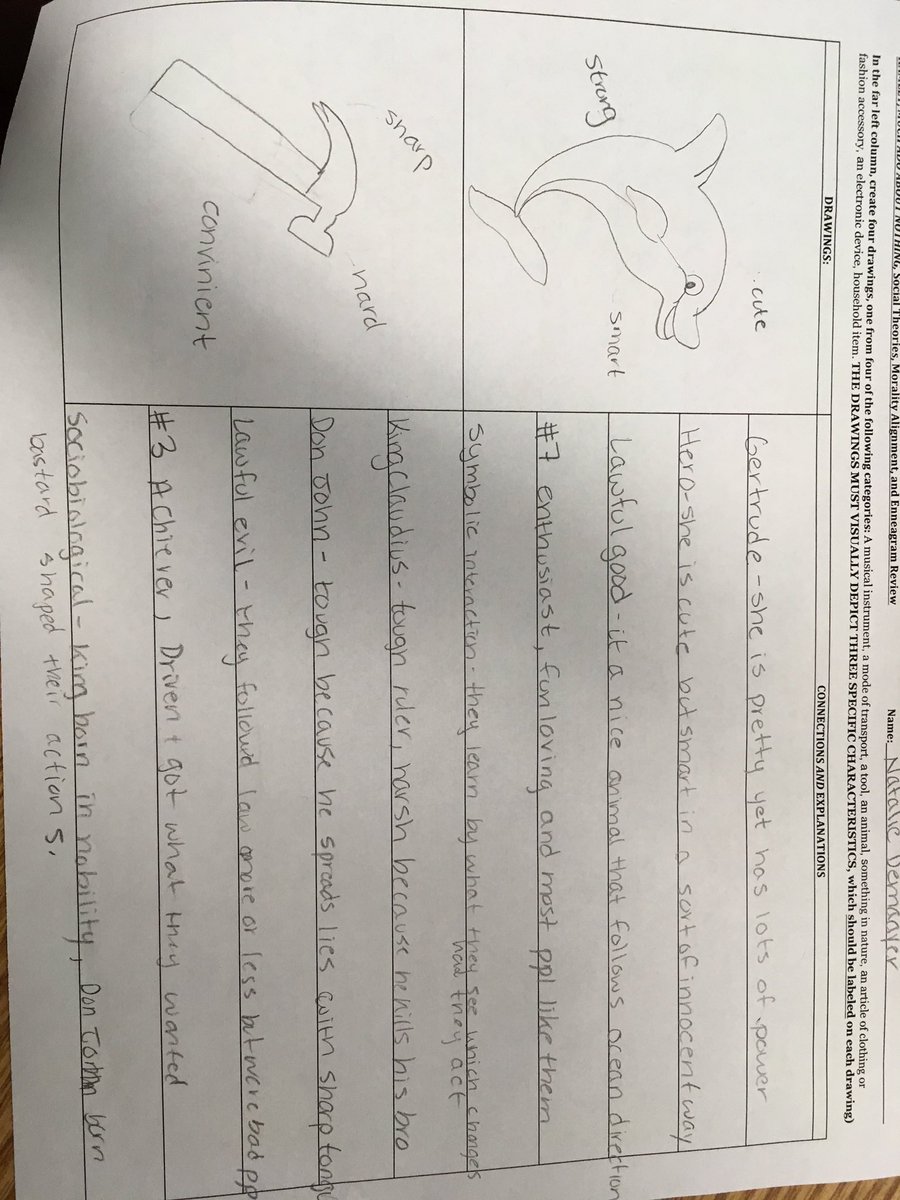 MUCH ADO ABOUT NOTHING, Social Theories, Morality Alignment, and Enneagram Review
Name: Natalie
In the far left column, create four drawings, one from four of the following categories: A musical instrument, a mode of transport, a tool, an animal, something in nature, an article of clothing or
fashion accessory, an electronic device, household item. THE DRAWINGS MUST VISUALLY DEPICT THREE SPECIFIC CHARACTERISTICS, which should be labeled on each drawing)
DRAWINGS:
CONNECTIONS AND EXPLANATIONS
cute
smart
strong
Gertrude - she is pretty yet has lots of power
Hero - she is cute but smart in a sort of innocent way
Lawful good - it a nice animal that follows ocean direction
#7 enthusiast, fun loving and most ppl like them
Symbolic interaction - they learn by what they see which changes
how they act
sharp
hard
convinient
King Claudius - tough ruler, harsh because he kills his bro
Don John - tough because he spreads lies with sharp tongu
Lawful evil - they followd law more or less but were bad pp
#3 Achiever, Driven + got what they wanted
Sociobiological - King born in nobility, Don John born
bastard shaped their actions.